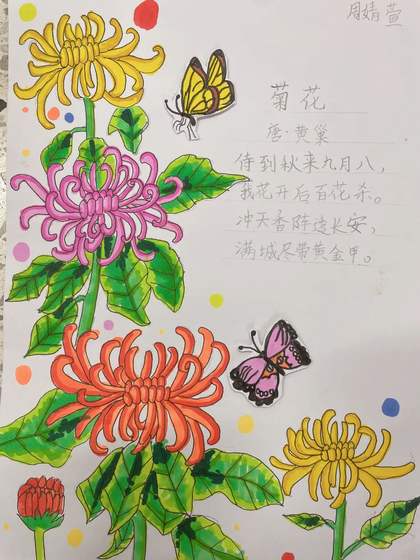 周婧萱
菊花
唐·黄巢
待到秋来九月八，
我花开后百花杀。
冲天香阵透长安，
满城尽带黄金甲。